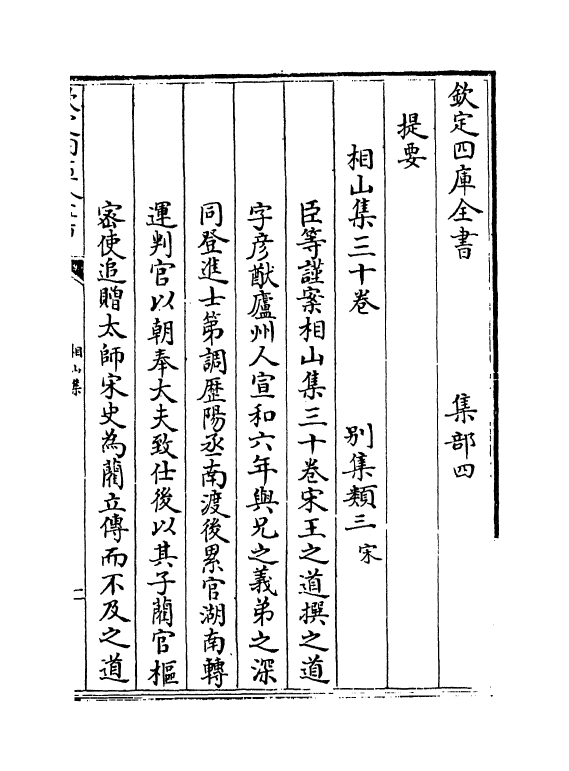 欽定四庫全書　集部四
提要
相山集三十卷　別集類三宋
臣等謹案相山集三十卷宋王之道撰之道
字彦猷廬州人宣和六年與兄之義弟之深
同登進士第調歴陽丞南渡後累官湖南轉
運判官以朝奉大夫致仕後以其子藺官樞
密使追贈太師宋史為藺立傳而不及之道
相山集